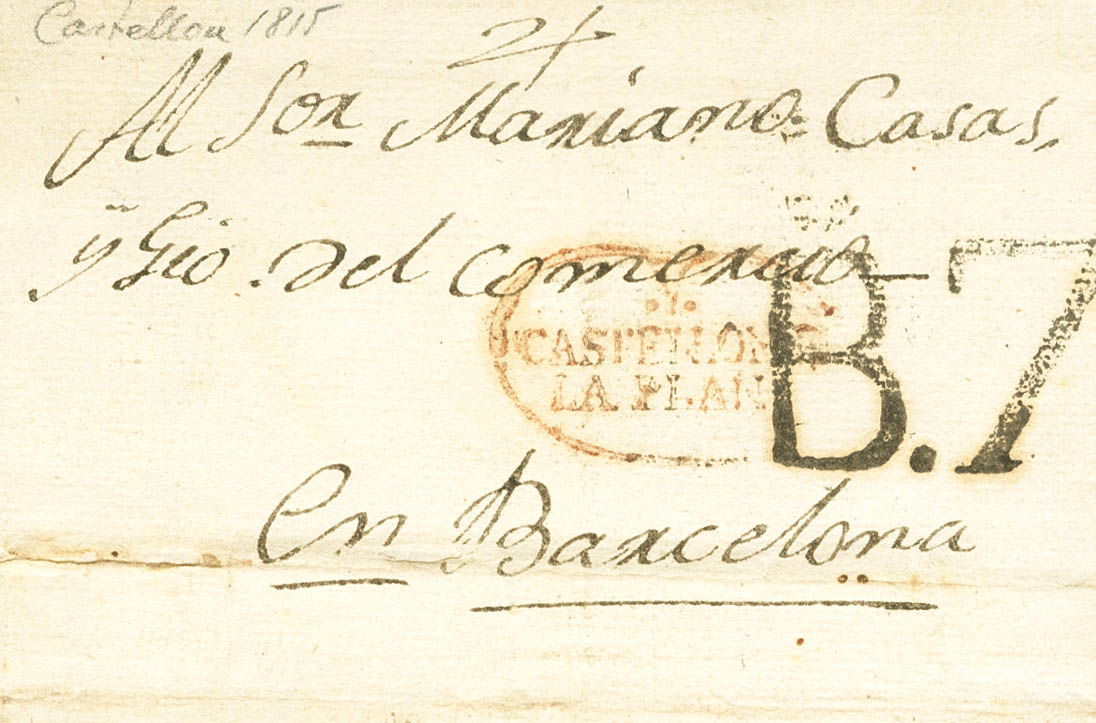 Castellon 1815
Al Sor Mariano Casas.
y Gio del comercio
CASTELLON
LA PLAN
B.7
En Barcelona